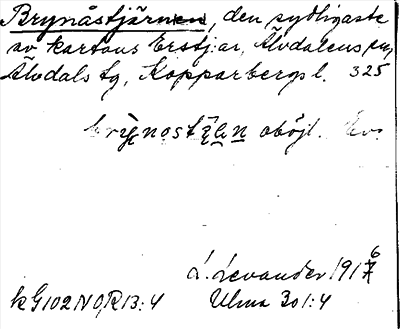 Brynåstjärnen, den sydligaste
av kartans Erstj:ar, Älvdalens sn,
Älvdals tg, Kopparbergs l. 325
oböjl.
L. Levander 1916
kG102NO,R13:4 Ulma 301:4